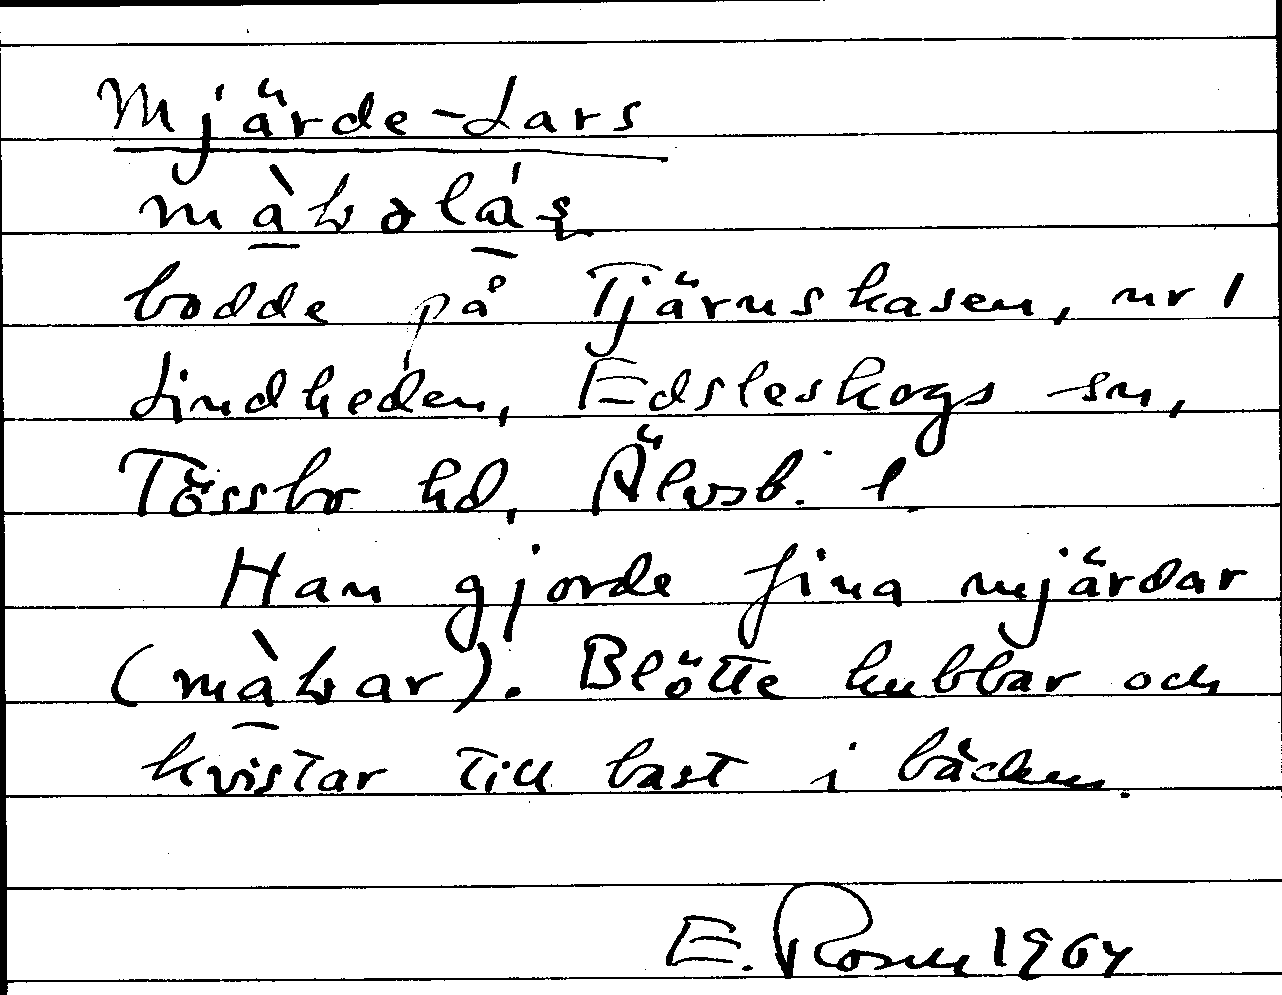 Mjärde-Lars
bodde på Tjärnskasen, nr 1
Lindheden, Edsleskogs sn,
Tössbo hd, Älvsb. l.
Han gjorde fina mjärdar
Blötte kubbar och
kvistar till bast i bäcken.
E. Rosen 1964